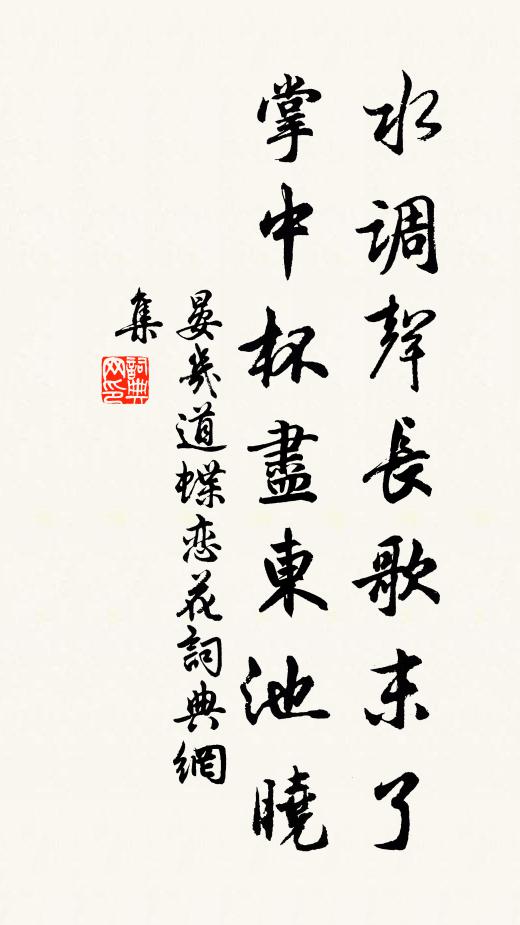 水調聲長歌未了
掌中杯盡東池曉
晏幾道蝶恋花詞典網
集
詞典网印